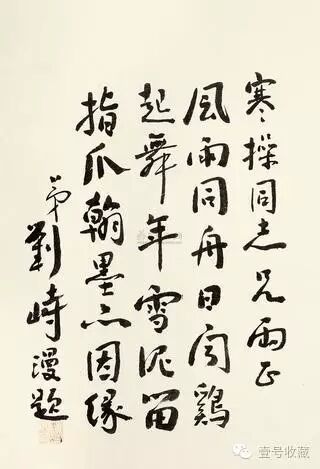 寒操同志兄两正
風雨同舟日闻鷄
起舞年雪泥留
指爪翰墨亦因缘
弟劉峙漫题
壹号收藏